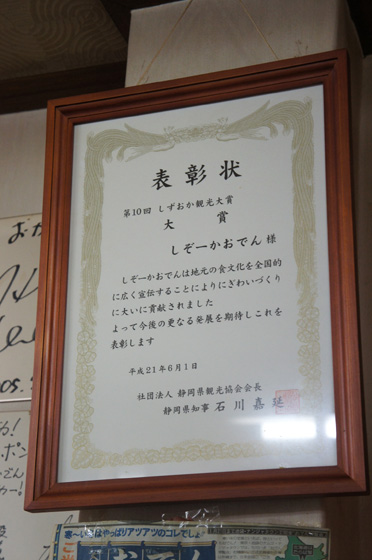 表彰状
第10回 しずおか観光大賞
大 賞
しぞーかおでん 様
しぞーかおでんは地元の食文化を全国的
に広く宣伝することによりにぎわいづくり
に大いに貢献されました
よって今後の更なる発展を期待しこれを
表彰します
平成21年6月1日
社団法人 静岡県観光協会会長
静岡県知事 石川嘉延
寒〜い冬はやっぱりアツアツのコレでしょ
おでん